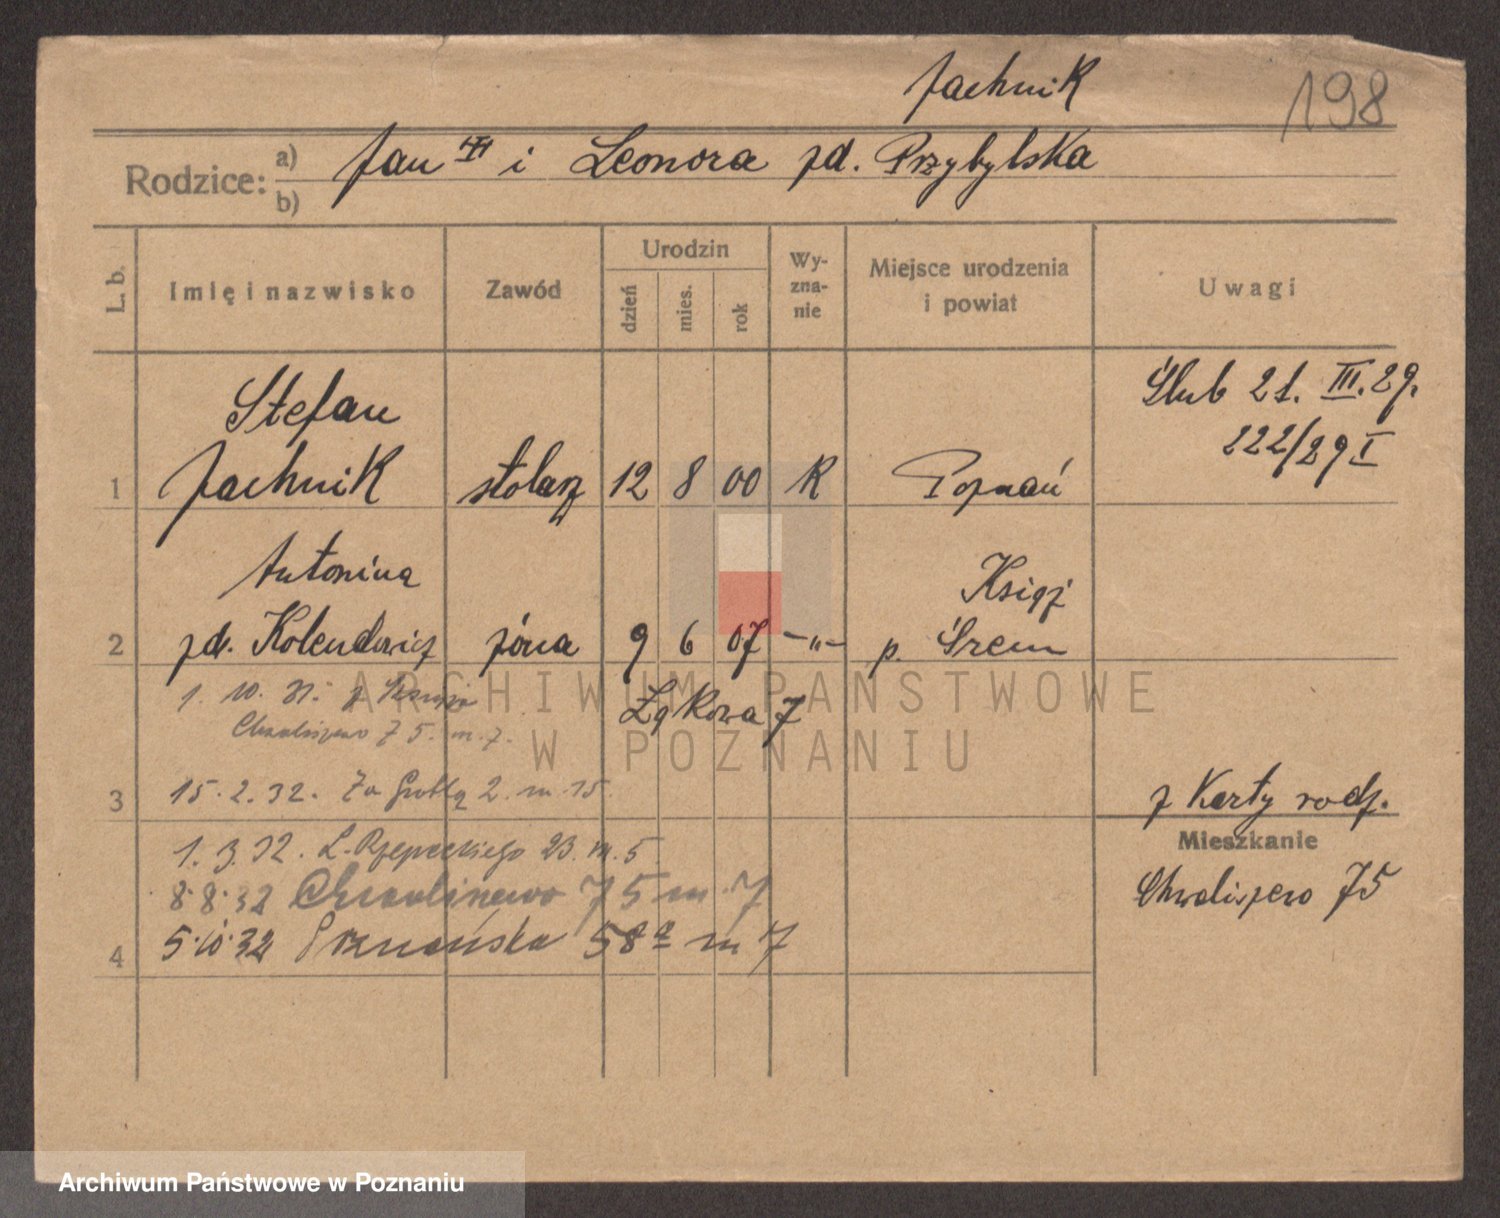 Jachnik
198
Rodzice: a) b) Jan III i Leonora zd. Przybylska
L. b. Imię i nazwisko Zawód Urodzin dzień mies. rok Wy-zna-nie Miejsce urodzenia i powiat Uwagi
Ślub 21. III. 29.
222/29 I
Stefan
1 Jachnik stolarz 12 8 00 R Poznań
Antonina Książ
2 zd. Kolendowicz żona 9 6 07 -"- p. Śrem
1. 10. 31. z
Łąkowa 7
Chwaliszewo 75. m. 7.
3 15. 2. 32. Za Groblą 2. m. 15.
z Karty rodz.
Mieszkanie
Chwaliszewo 75
1. 3. 32. L. Rzepeckiego 23. m. 5
8. 8. 32 Chwaliszewo 75 m. 7
4 5. 10. 32 58a m 7
ARCHIWUM PAŃSTWOWE
W POZNANIU
Archiwum Państwowe w Poznaniu